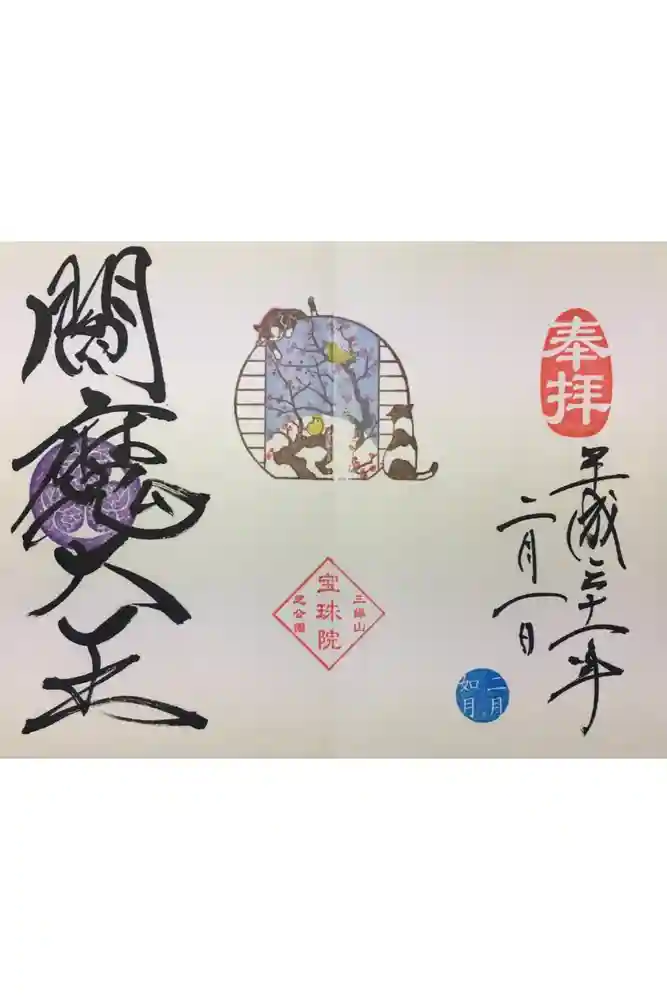 奉拝
平成三十一年
二月一日
二月
如月
三縁山
宝珠院
芝公園
閻魔大王